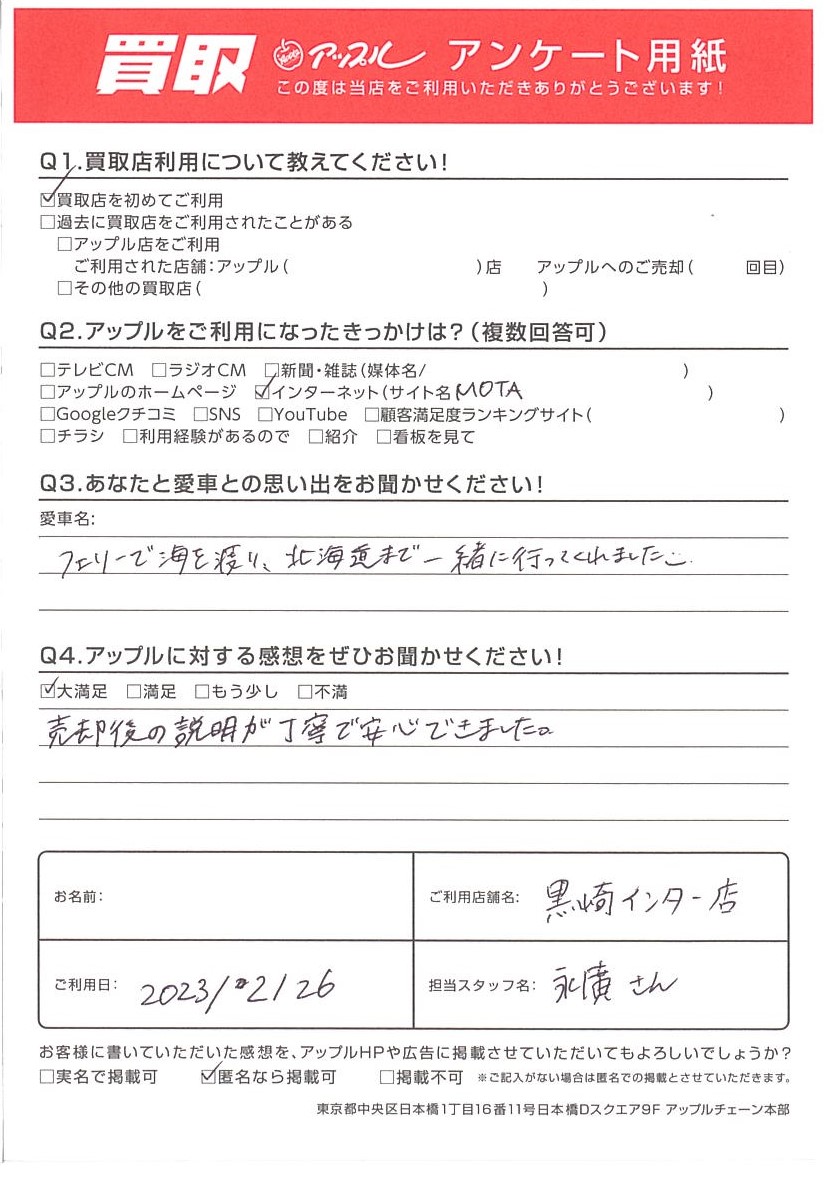 買取 アップル アンケート用紙
この度は当店をご利用いただきありがとうございます!
Q1.買取店利用について教えてください!
☑買取店を初めてご利用
□過去に買取店をご利用されたことがある
□アップル店をご利用
ご利用された店舗:アップル( )店 アップルへのご売却( 回目)
□その他の買取店( )
Q2.アップルをご利用になったきっかけは?(複数回答可)
□テレビCM □ラジオCM □新聞・雑誌(媒体名/ )
□アップルのホームページ ☑インターネット(サイト名 MOTA )
□Googleクチコミ □SNS □YouTube □顧客満足度ランキングサイト( )
□チラシ □利用経験があるので □紹介 □看板を見て
Q3.あなたと愛車との思い出をお聞かせください!
愛車名:
フェリーで海を渡り、北海道まで一緒に行ってくれました
Q4.アップルに対する感想をぜひお聞かせください!
☑大満足 □満足 □もう少し □不満
売却後の説明が丁寧で安心できました。
お名前:
ご利用店舗名: 黒崎インター店
ご利用日: 2023/2/26
担当スタッフ名: 永廣さん
お客様に書いていただいた感想を、アップルHPや広告に掲載させていただいてもよろしいでしょうか?
□実名で掲載可 ☑匿名なら掲載可 □掲載不可 ※ご記入がない場合は匿名での掲載とさせていただきます。
東京都中央区日本橋1丁目16番11号日本橋Dスクエア9F アップルチェーン本部